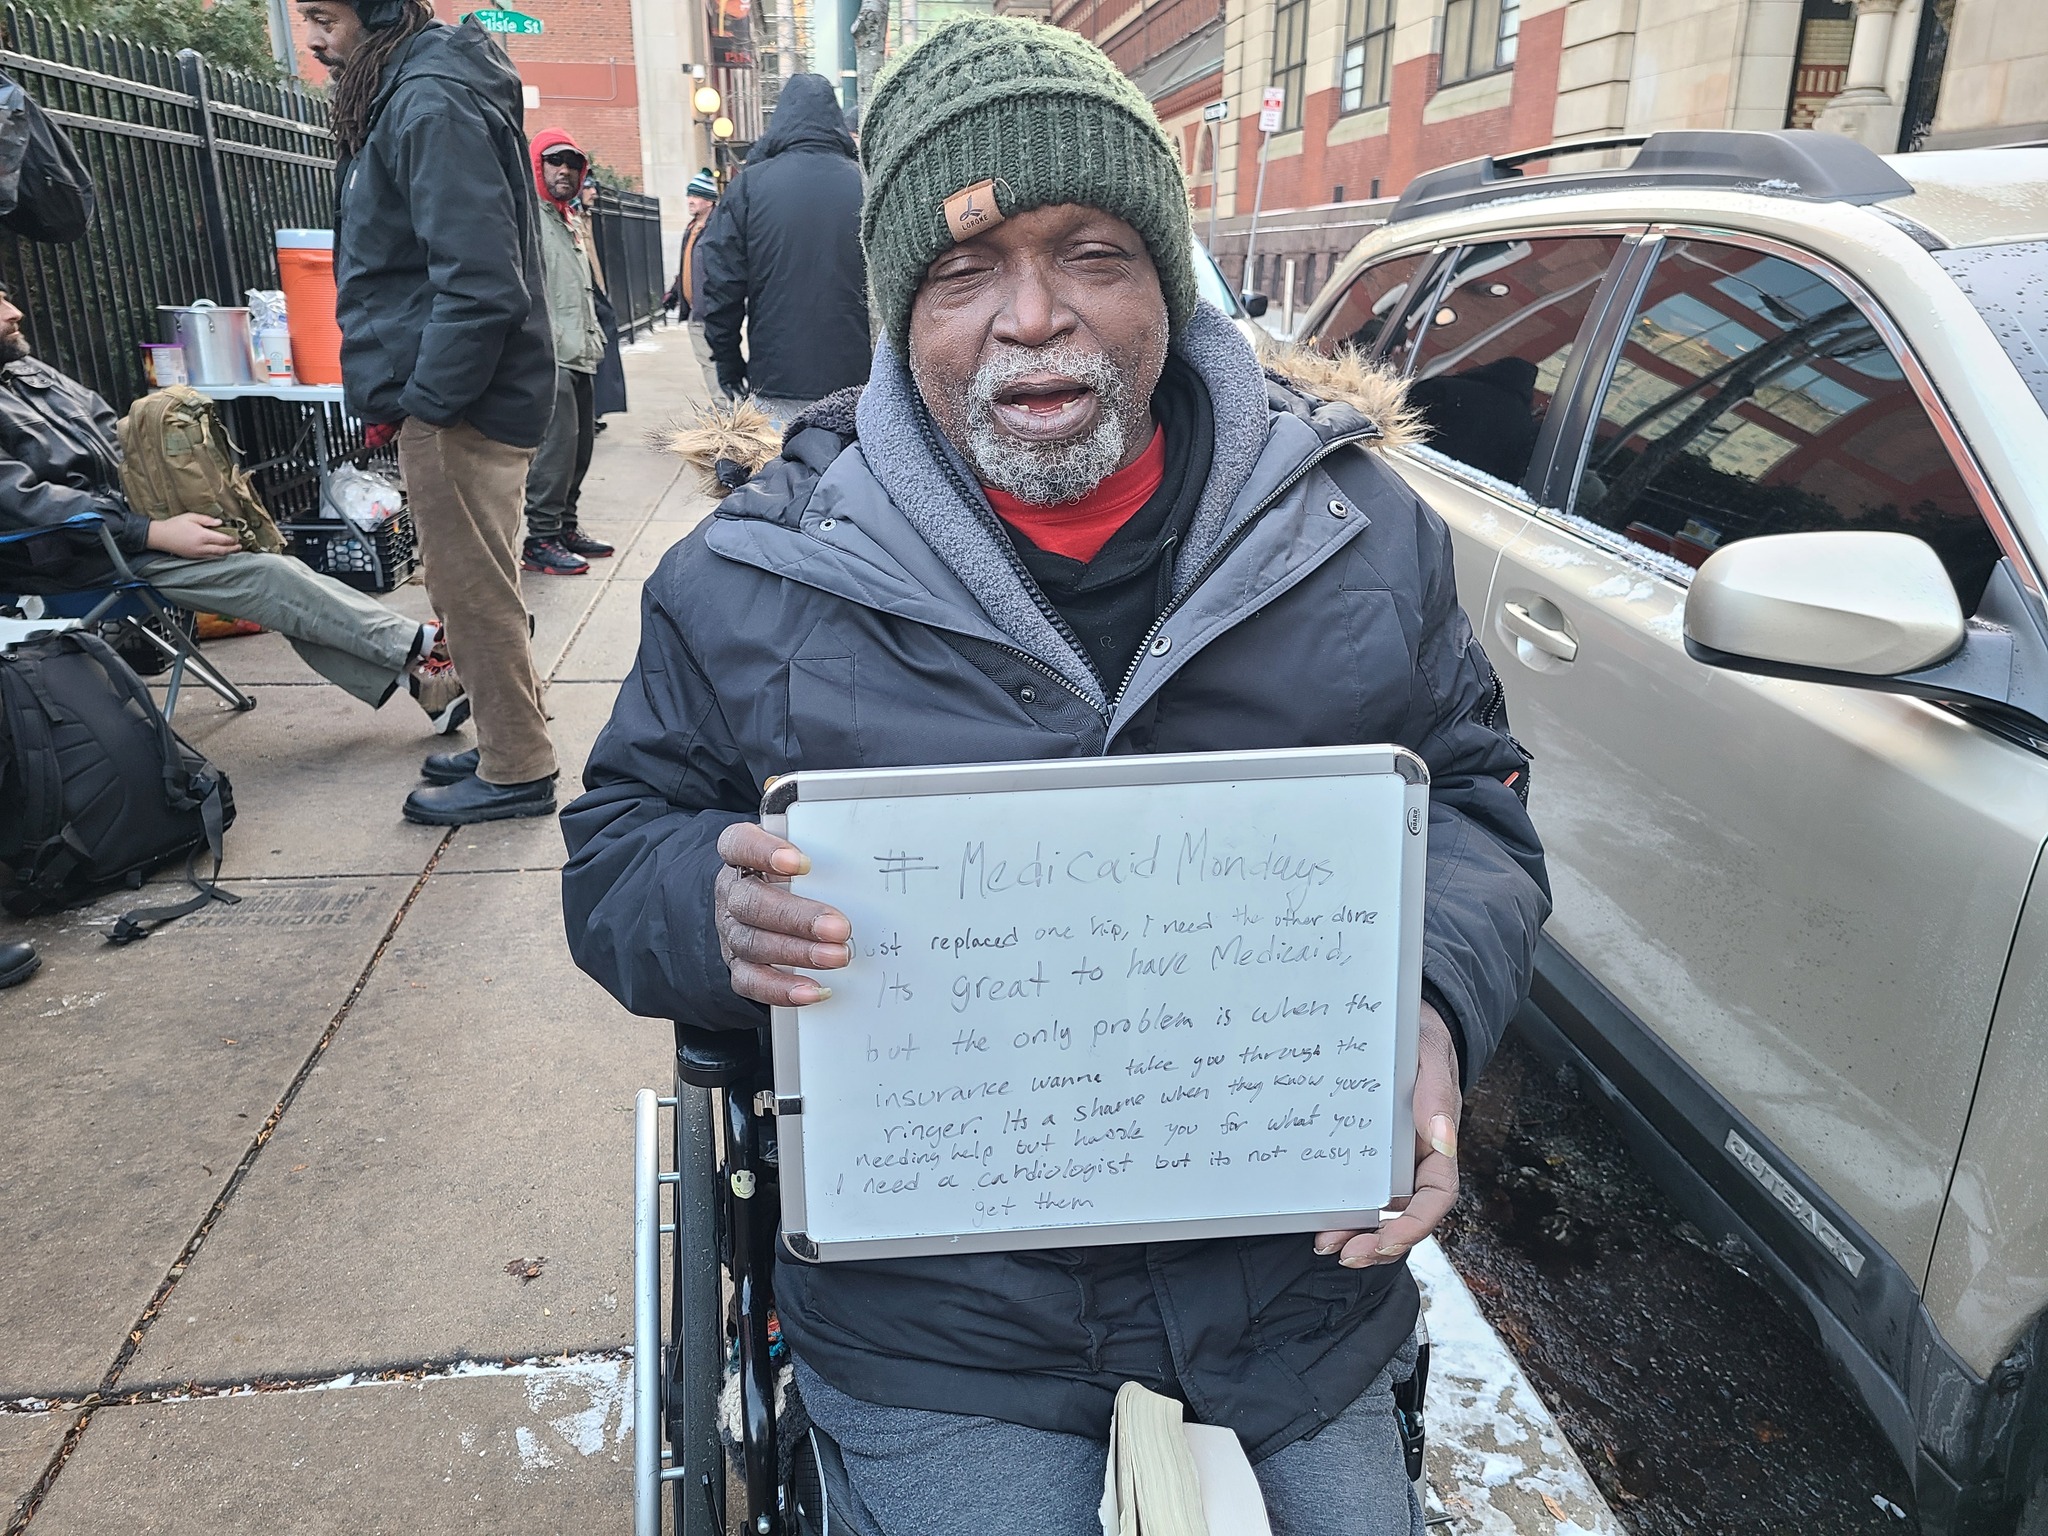 lisle St
LOROME
# Medicaid Mondays
ust replaced one hip, I need the other done
Its great to have Medicaid,
but the only problem is when the
insurance wanna take you through the
ringer. Its a shame when they know you're
needing help but hassle you for what you
I need a cardiologist but its not easy to
get them
OUTBACK